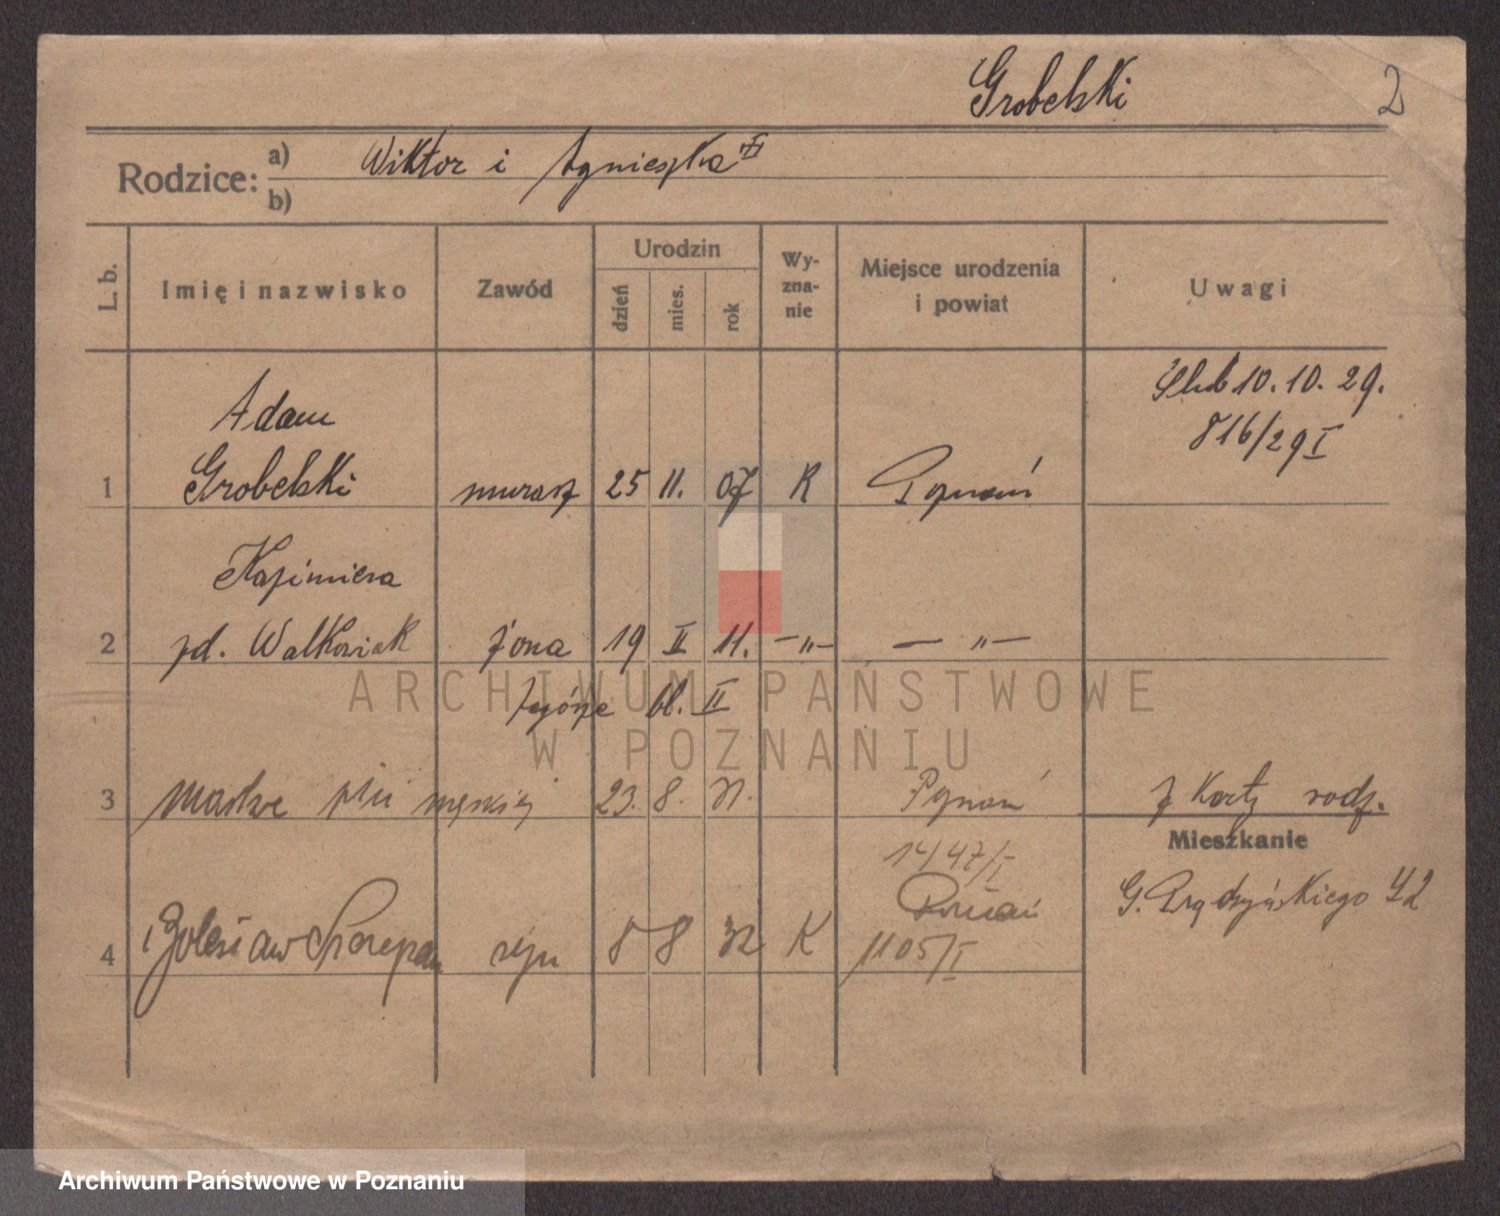 Grobelski 2
Rodzice: a) Wiktor i Agnieszka
b)
L. b. Imię i nazwisko Zawód Urodzin dzień mies. rok Wy-zna-nie Miejsce urodzenia i powiat Uwagi
Ślub 10.10.29.
816/29 I
Adam
1 Grobelski murarz 25 11. 07 K Poznań
Kazimiera
2 zd. Walkowiak żona 19 II 11. —„— — „ —
bl. II
3 martwe płci męskiej 23. 8. 31. Poznań z Karty rodz.
Mieszkanie
1447/I
G. Prądzyńskiego 42
Poznań
4 Bolesław Szczepan syn 8 8 32 K 1105/I
ARCHIWUM PAŃSTWOWE
W POZNANIU
Archiwum Państwowe w Poznaniu